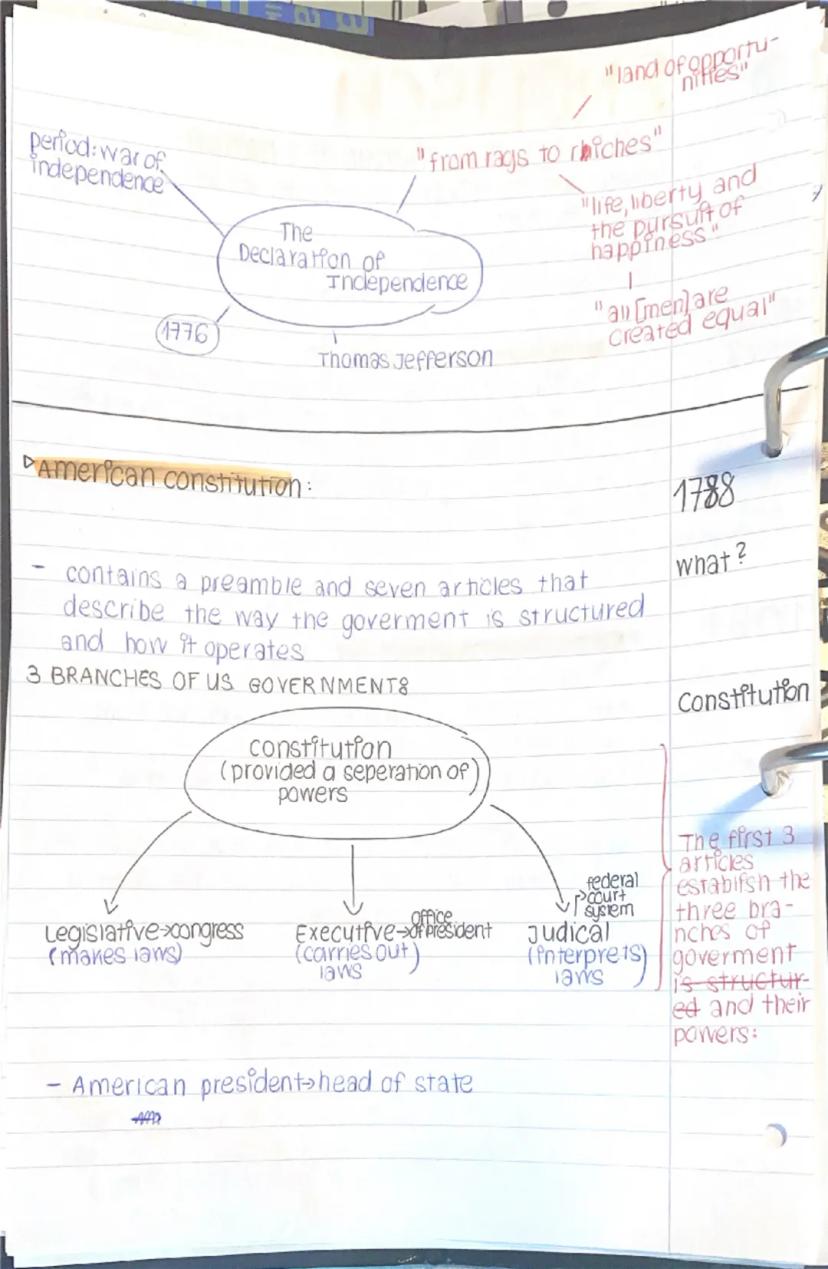 "land of opportu-
nities"
period: war of
independence
"from rags to riches"
"life, liberty and
the pursuit of
happiness"
The
Declaration of
Independence
"all [men] are
created equal"
1776
Thomas Jefferson
American constitution:
1788
what?
- contains a preamble and seven articles that
describe the way the goverment is structured
and how it operates
3 BRANCHES OF US GOVERNMENTS
Constitution
constitution
(provided a seperation of)
powers
The first 3
articles
establish the
three bra-
nches of
goverment
is structur-
ed and their
powers:
federal
court
system
office
Legislative→congress
Executive→of president
Judical
(makes laws)
(carries out)
laws
(interprets)
laws
- American president→head of state